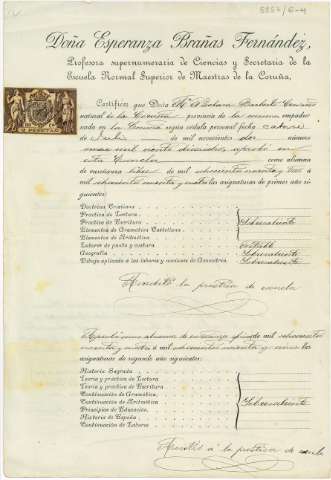 Doña Esperanza Brañas Fernández,
Profesora supernumeraria de Ciencias y Secretaria de la
Escuela Normal Superior de Maestras de la Coruña,
Certifico: que Doña Mª Bárbara
natural de la Coruña provincia de la misma empadro
nada en la Coruña según cédula personal fecha catorce
de Julio de mil novecientos dos número
mil veinte aprobó en
esta Escuela como alumna
de enseñanza libre de mil ochocientos noventa y tres á
mil ochocientos noventa y cuatro las asignaturas de primer año si-
guientes:
Doctrina Cristiana
Práctica de Lectura
Práctica de Escritura
Elementos de Gramática Castellana
Elementos de Aritmética
Sobresaliente
Labores de punto y costura Notable
Geografía Sobresaliente
Dibujo aplicado á las labores y nociones de Geometría Sobresaliente
Asistió á la práctica de escuela
alumna de enseñanza de mil ochocientos
noventa y cuatro á mil ochocientos noventa y cinco las
asignaturas de segundo año siguientes:
Historia Sagrada
Teoría y práctica de Lectura
Teoría y práctica de Escritura
Continuación de Gramática
Continuación de Aritmética
Principios de Educación
Historia de España
Continuación de Labores
Sobresaliente
Asistió á la práctica de escuela